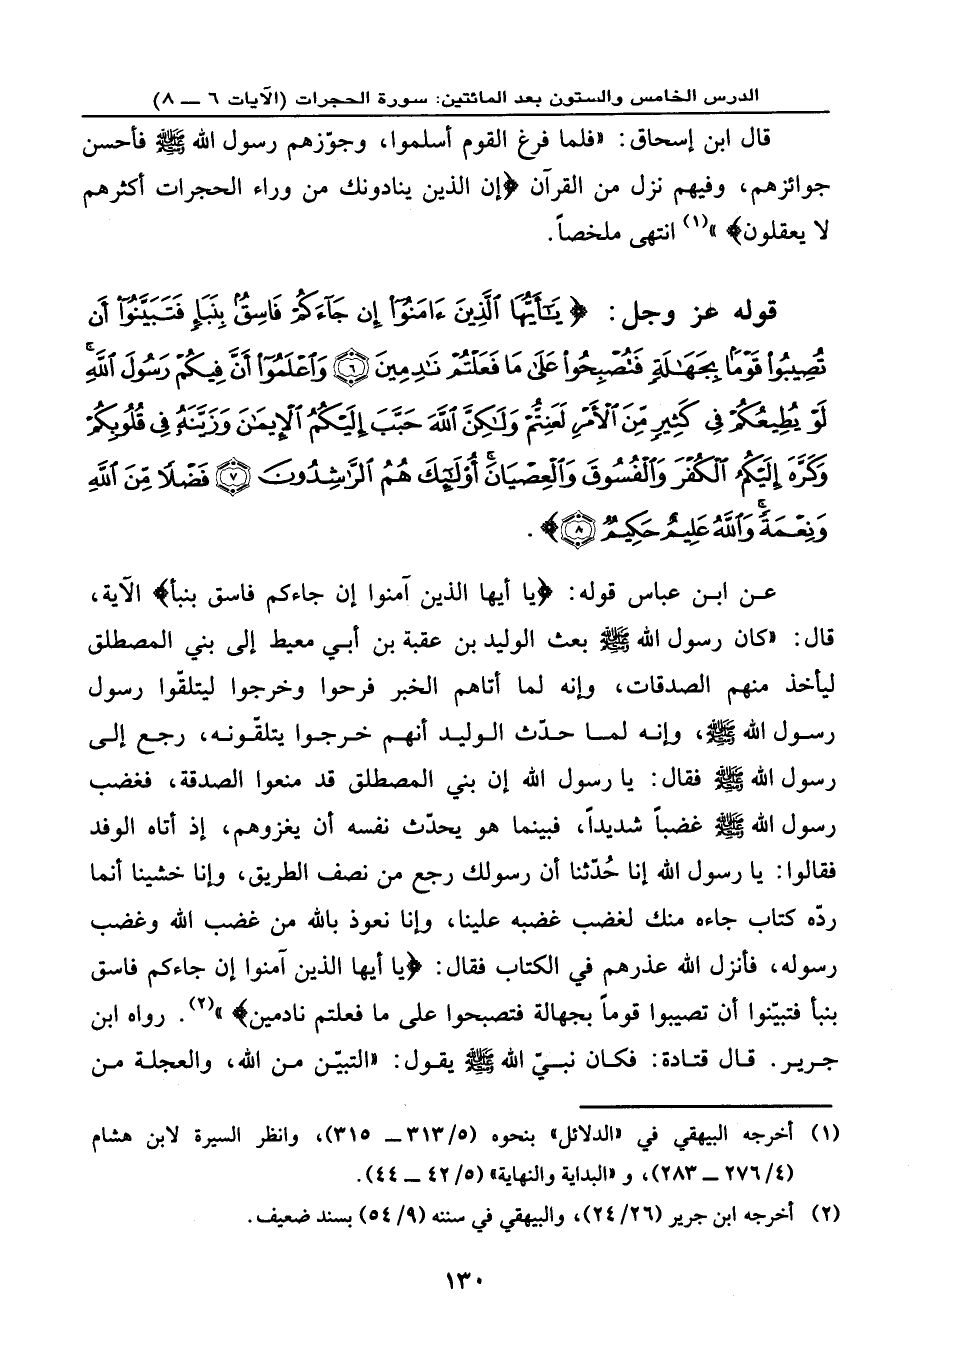 الدرس الخامس والستون بعد المائتين: سورة الحجرات (الآيات ٦ ــ ٨)
قال ابن إسحاق: «فلما فرغ القوم أسلموا، وجوّزهم رسول الله ﷺ فأحسن
جوائزهم، وفيهم نزل من القرآن ﴿إن الذين ينادونك من وراء الحجرات أكثرهم
لا يعقلون﴾ »(١) انتهى ملخصاً.
قوله عز وجل: ﴿ يَـٰٓأَيُّهَا ٱلَّذِينَ ءَامَنُوٓا۟ إِن جَآءَكُمْ فَاسِقٌۢ بِنَبَإٍ فَتَبَيَّنُوٓا۟ أَن
تُصِيبُوا۟ قَوْمًۢا بِجَهَـٰلَةٍ فَتُصْبِحُوا۟ عَلَىٰ مَا فَعَلْتُمْ نَـٰدِمِينَ ۝٦ وَٱعْلَمُوٓا۟ أَنَّ فِيكُمْ رَسُولَ ٱللَّهِ ۚ
لَوْ يُطِيعُكُمْ فِى كَثِيرٍ مِّنَ ٱلْأَمْرِ لَعَنِتُّمْ وَلَـٰكِنَّ ٱللَّهَ حَبَّبَ إِلَيْكُمُ ٱلْإِيمَـٰنَ وَزَيَّنَهُۥ فِى قُلُوبِكُمْ
وَكَرَّهَ إِلَيْكُمُ ٱلْكُفْرَ وَٱلْفُسُوقَ وَٱلْعِصْيَانَ ۚ أُو۟لَـٰٓئِكَ هُمُ ٱلرَّٰشِدُونَ ۝٧ فَضْلًا مِّنَ ٱللَّهِ
وَنِعْمَةً ۚ وَٱللَّهُ عَلِيمٌ حَكِيمٌ ۝٨ ﴾ .
عن ابن عباس قوله: ﴿يا أيها الذين آمنوا إن جاءكم فاسق بنبأ﴾ الآية،
قال: «كان رسول الله ﷺ بعث الوليد بن عقبة بن أبي معيط إلى بني المصطلق
ليأخذ منهم الصدقات، وإنه لما أتاهم الخبر فرحوا وخرجوا ليتلقّوا رسول
رسول الله ﷺ، وإنه لما حدّث الوليد أنهم خرجوا يتلقّونه، رجع إلى
رسول الله ﷺ فقال: يا رسول الله إن بني المصطلق قد منعوا الصدقة، فغضب
رسول الله ﷺ غضباً شديداً، فبينما هو يحدّث نفسه أن يغزوهم، إذ أتاه الوفد
فقالوا: يا رسول الله إنا حُدّثنا أن رسولك رجع من نصف الطريق، وإنا خشينا أنما
ردّه كتاب جاءه منك لغضب غضبه علينا، وإنا نعوذ بالله من غضب الله وغضب
رسوله، فأنزل الله عذرهم في الكتاب فقال: ﴿يا أيها الذين آمنوا إن جاءكم فاسق
بنبأ فتبيّنوا أن تصيبوا قوماً بجهالة فتصبحوا على ما فعلتم نادمين﴾ »(٢). رواه ابن
جرير. قال قتادة: فكان نبيّ الله ﷺ يقول: «التبيّن من الله، والعجلة من
(١) أخرجه البيهقي في «الدلائل» بنحوه (٥/٣١٣ ــ ٣١٥)، وانظر السيرة لابن هشام
(٤/٢٧٦ ــ ٢٨٣)، و «البداية والنهاية» (٥/٤٢ ــ ٤٤).
(٢) أخرجه ابن جرير (٢٦/٢٤)، والبيهقي في سننه (٩/٥٤) بسند ضعيف.
١٣٠